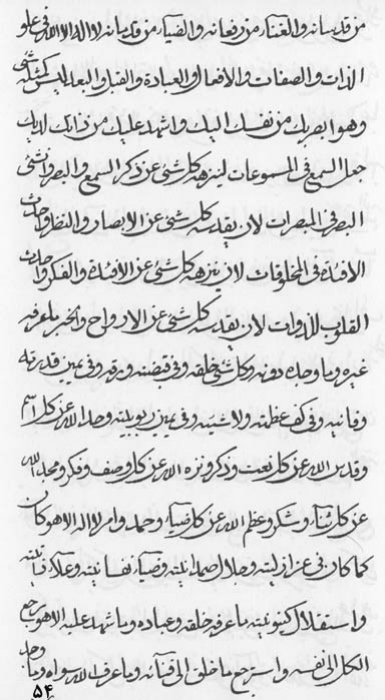 من قدسانه والغناء من رفعانه والضياء من قدسانه لا اله الا الله في علو
الذات والصفات والافعال والعبادة والقبل والبعد ليس كمثله شئ
وهو اقرب من نفسك اليك واشهد عليك من ذاتك لديك
جعل السمع في المسموعات لينزهه كل شئ عن ذكر السمع والبصر وانشئ
البصر في المبصرات لان يقدسه كل شئ عن الابصار والنظر واحدث
الافئدة في المخلوقات لان ينزهه كل شئ عن الافئدة والفكر واحدث
القلوب للذوات لان يقدسه كل شئ عن الارواح والخبر لم يعرفه
غيره وما وجده دونه وكل شئ خلقه وفي قبضته ورقه وفي يمين قدرته
وفانيه وفي كف عظمته ولاشيئه وفي يمين ربوبيته وحد الله عن كل اسم
وقدس الله عن كل نعت وذكر ونزه الله عن كل وصف وفكر ومجد الله
عن كل ثناء وشكر وعظم الله عن كل ضياء وحمد وامر لا اله الا هو كان
كما كان في عز ازليته وجلال صمدانيته وضياء نفسانيته وعلاء
واستقلال كينونيته ما عرفه خلقه وعباده وما شهد عليه الا هو رجع
الكل الى نفسه واسترجع ما خلق الى افنائه وما عرف الله سواه وما وحد
۵۴